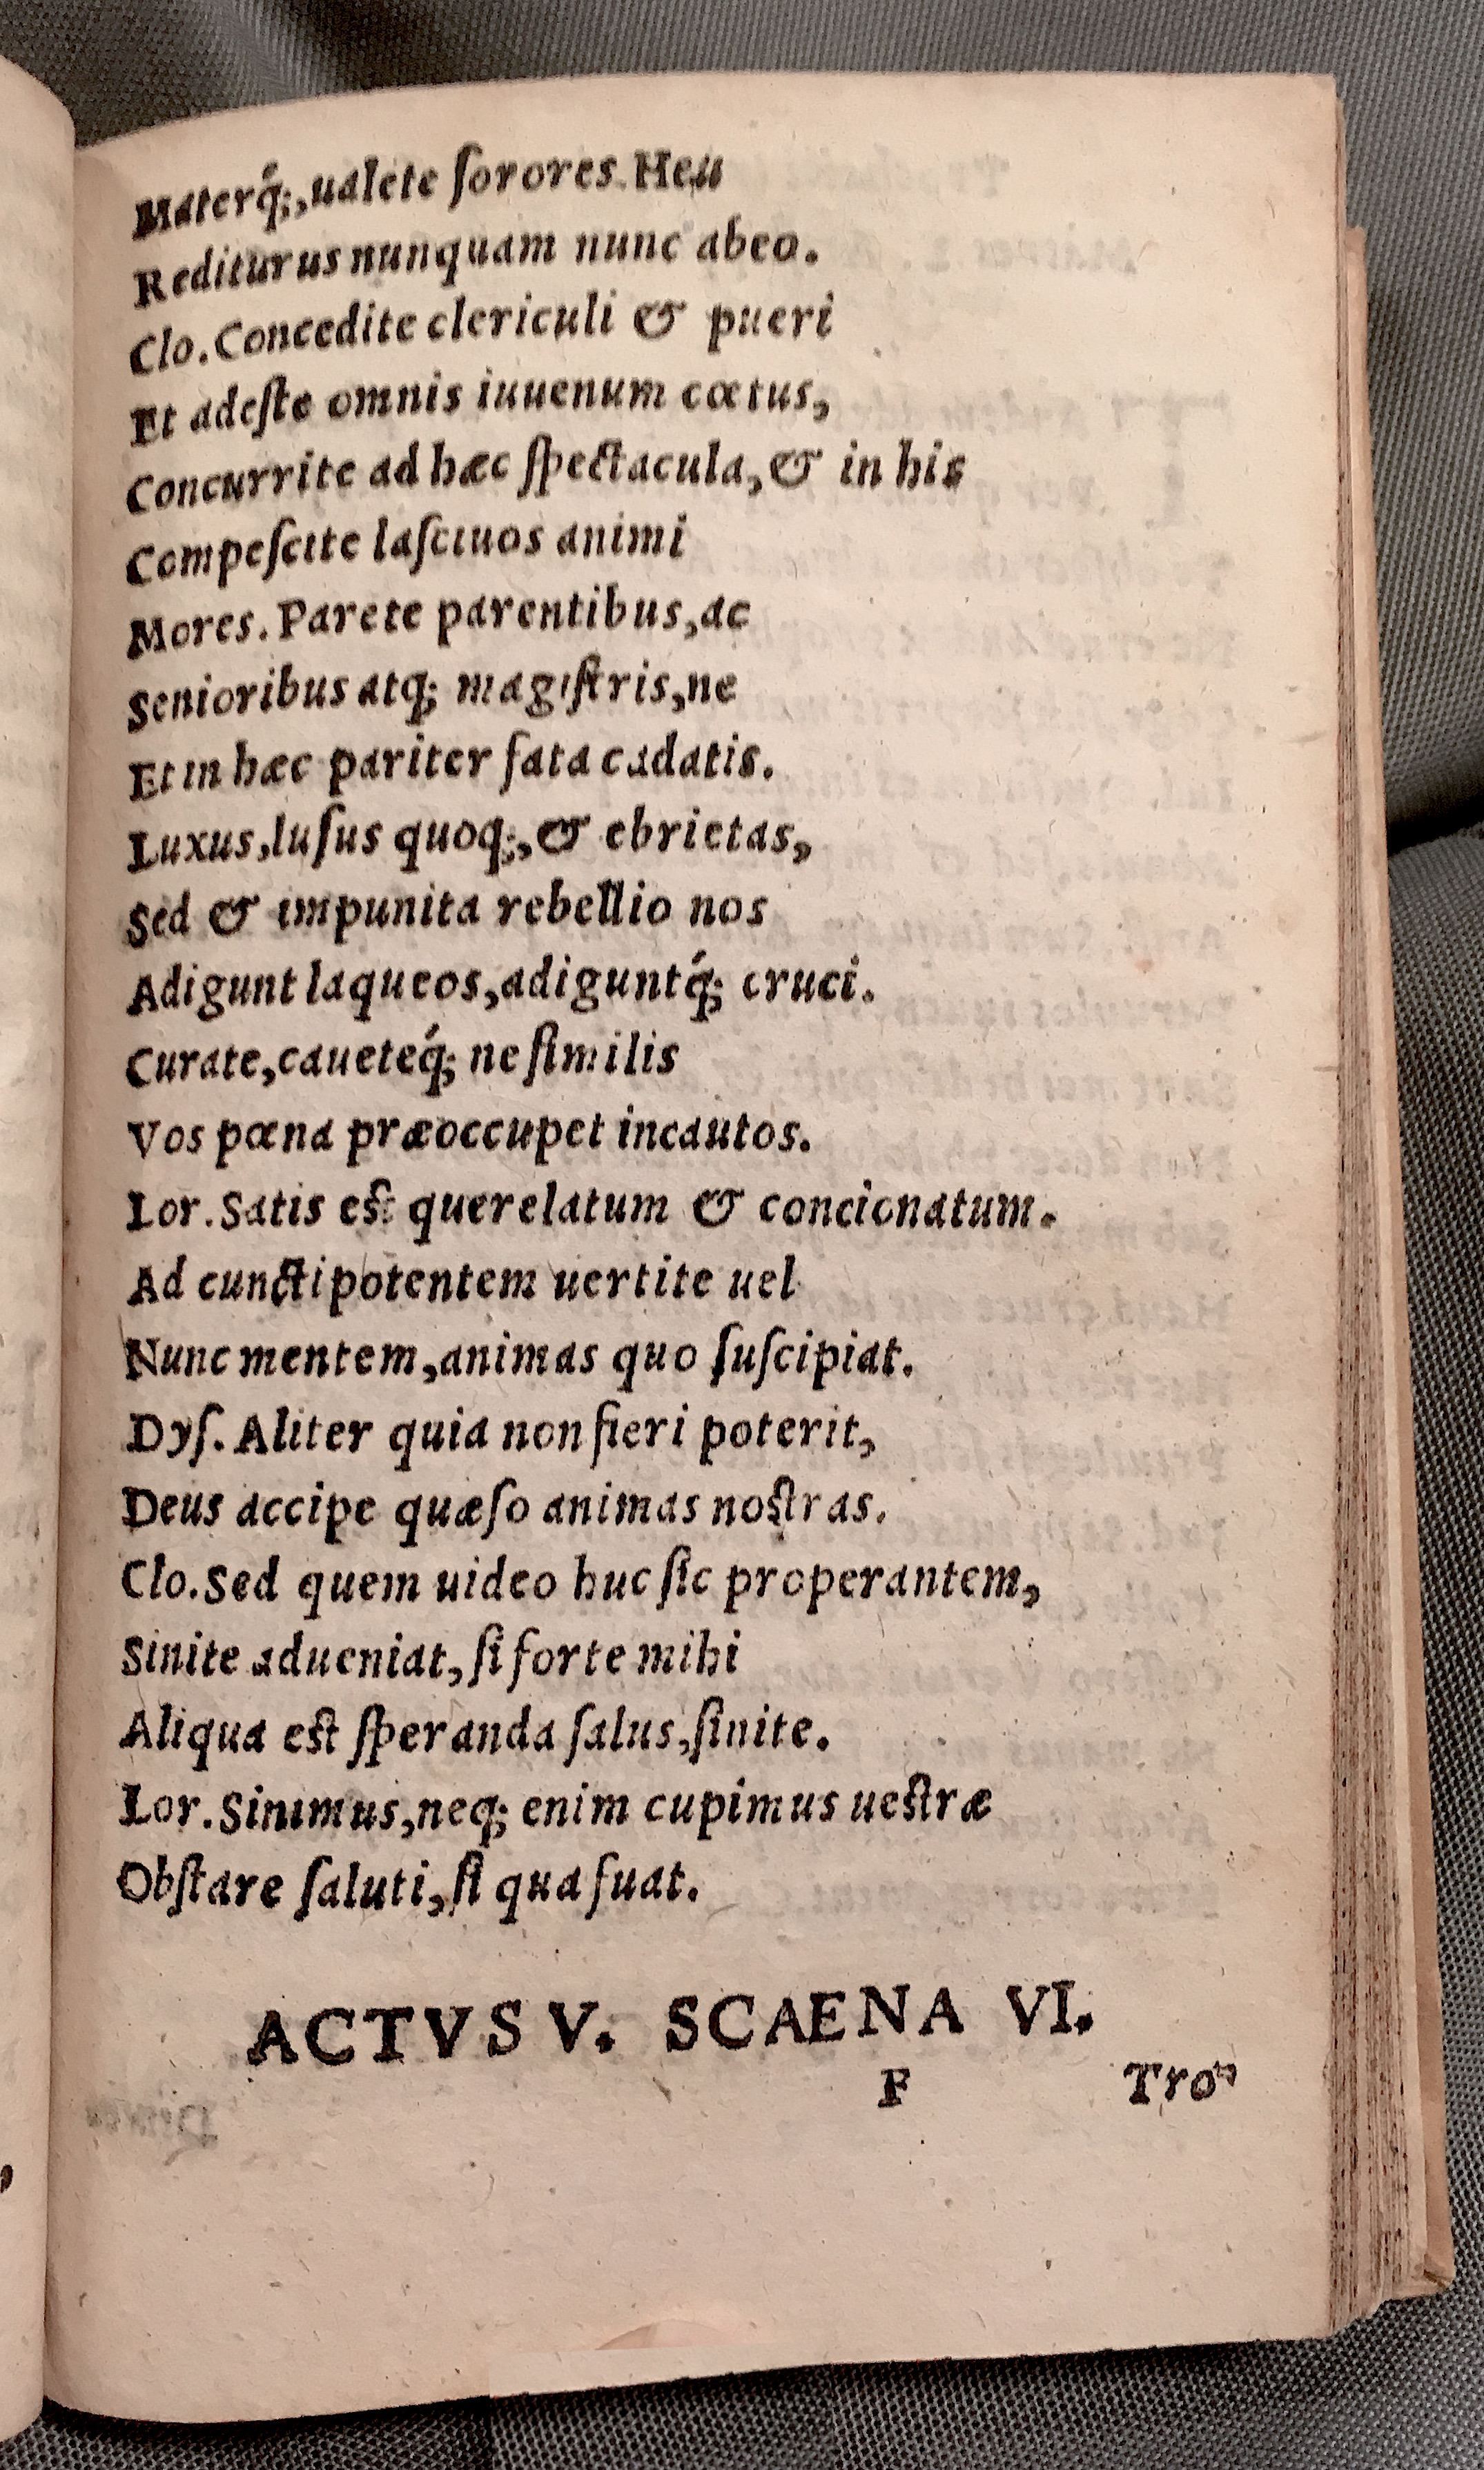 Materq́;, ualete ſorores. Heu
Rediturus nunquam nunc abeo.
Clo. Concedite clericuli & pueri
Et adeſte omnis iuuenum cœtus,
Concurrite ad hæc ſpectacula, & in his
Compeſcite laſciuos animi
Mores. Parete parentibus, ac
Senioribus atq; magiſtris, ne
Et in hæc pariter fata cadatis.
Luxus, luſus quoq;, & ebrietas,
Sed & impunita rebellio nos
Adigunt laqueos, adiguntq́; cruci.
Curate, caueteq́; ne ſimilis
Vos pœna præoccupet incautos.
Lor. Satis eſt querelatum & concionatum.
Ad cunctipotentem uertite uel
Nunc mentem, animas quo ſuſcipiat.
Dyſ. Aliter quia non fieri poterit,
Deus accipe quæſo animas noſtras.
Clo. Sed quem uideo huc ſic properantem,
Sinite adueniat, ſi forte mihi
Aliqua eſt ſperanda ſalus, ſinite.
Lor. Sinimus, neq; enim cupimus ueſtræ
Obſtare ſaluti, ſi qua fuat.
ACTVS V. SCAENA VI.
F Tro-